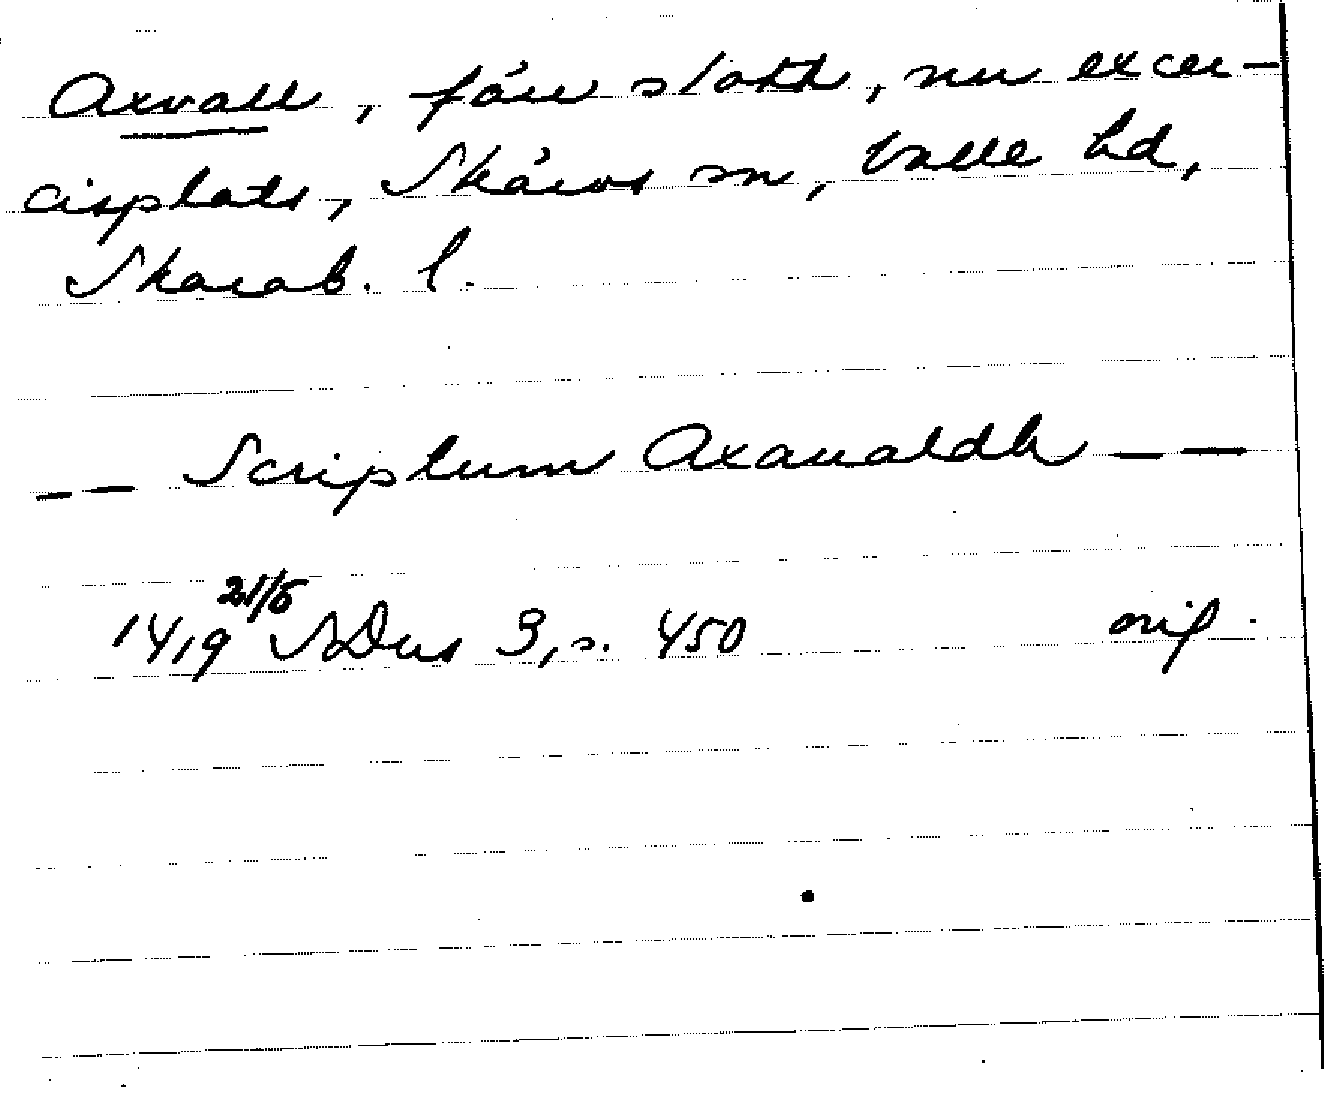 Axvall, förr slott, nu excer-
cisplats, Skärvs sn, Valle hd,
Skarab. l.
— — Scriptum Axaualdh — —
1419 21/6 SDns 3, s. 450 orig.